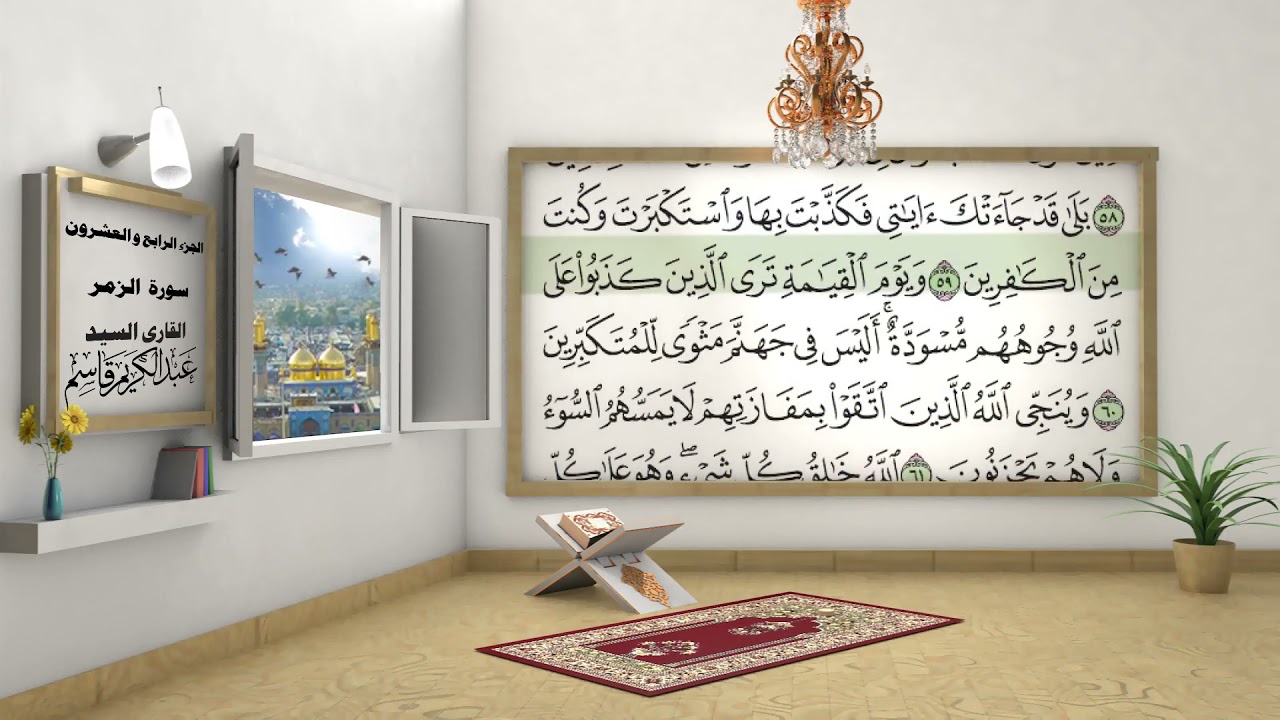 الجزء الرابع والعشرون
سورة الزمر
القارى السيد
عبدالكريم قاسم
٥٨ بَلَىٰ قَدْ جَآءَتْكَ ءَايَٰتِى فَكَذَّبْتَ بِهَا وَٱسْتَكْبَرْتَ وَكُنتَ
مِنَ ٱلْكَٰفِرِينَ ٥٩ وَيَوْمَ ٱلْقِيَٰمَةِ تَرَى ٱلَّذِينَ كَذَبُوا۟ عَلَى
ٱللَّهِ وُجُوهُهُم مُّسْوَدَّةٌ ۚ أَلَيْسَ فِى جَهَنَّمَ مَثْوًى لِّلْمُتَكَبِّرِينَ
٦٠ وَيُنَجِّى ٱللَّهُ ٱلَّذِينَ ٱتَّقَوْا۟ بِمَفَازَتِهِمْ لَا يَمَسُّهُمُ ٱلسُّوٓءُ
وَلَا هُمْ يَحْزَنُونَ ٦١ ٱللَّهُ خَٰلِقُ كُلِّ شَىْءٍ ۖ وَهُوَ عَلَىٰ كُلِّ